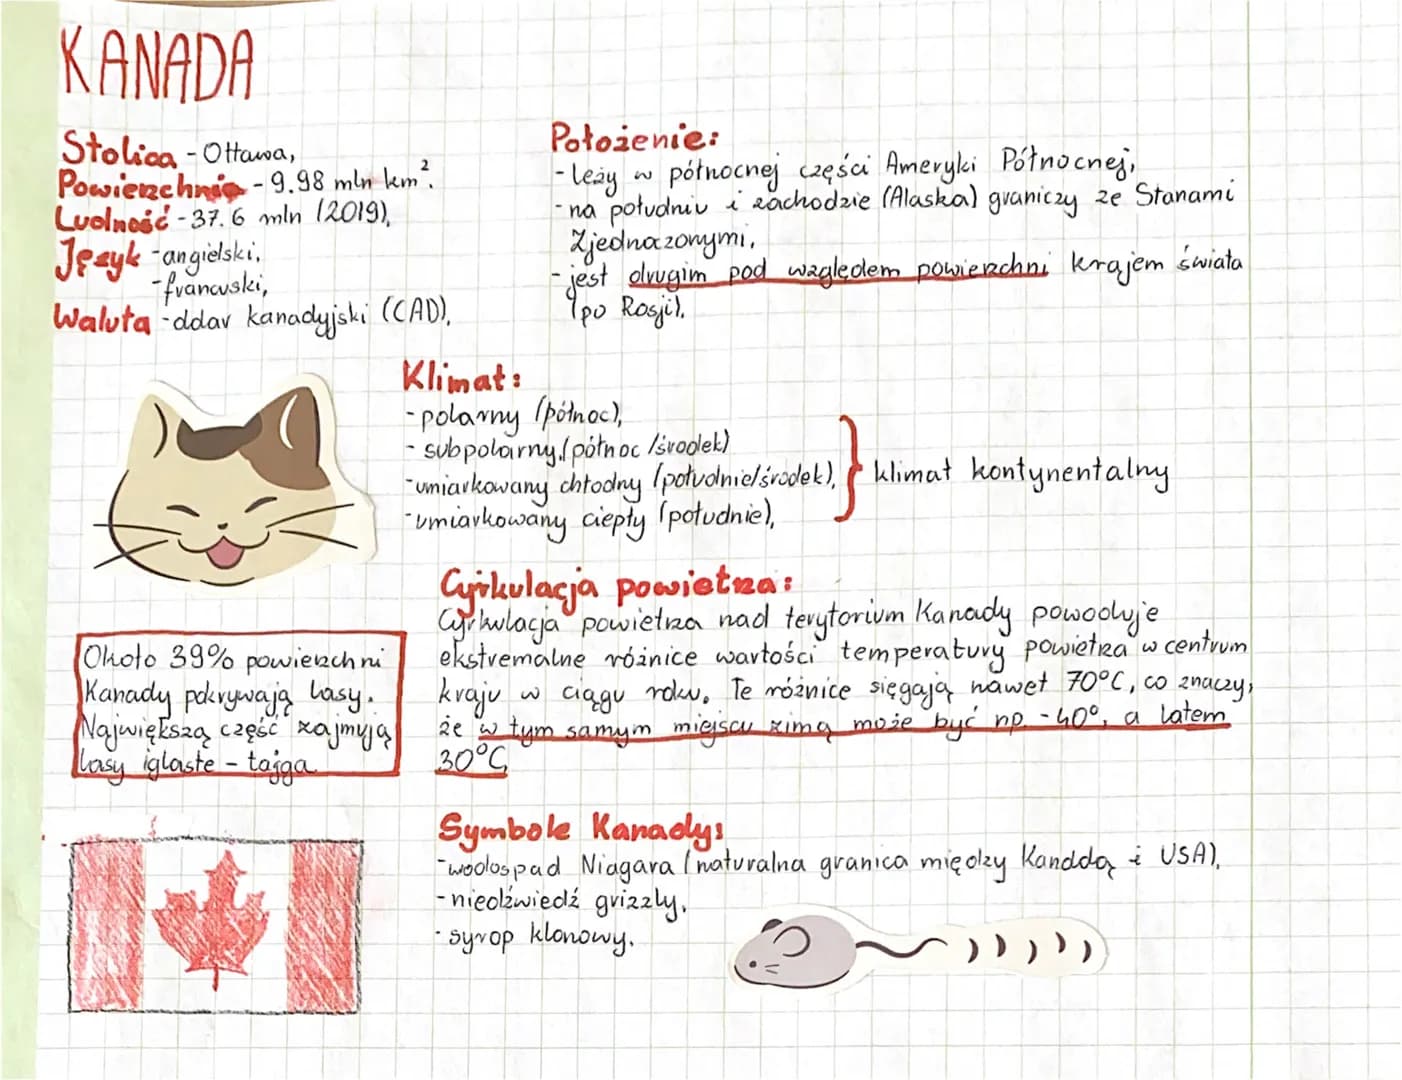 KANADA
Stolica - Ottawa,
Powierzchnia - 9.98 mln km².
Ludność - 37.6 mln (2019),
Język - angielski,
- francuski,
Waluta - dolar kanadyjski (CAD),
Położenie:
- leży w północnej części Ameryki Północnej,
- na południu i zachodzie (Alaska) graniczy ze Stanami
Zjednoczonymi,
- jest drugim pod względem powierzchni krajem świata
(po Rosji).
Klimat:
- polarny (północ),
- subpolarny (północ/środek)
- umiarkowany chłodny (południe/środek),
- umiarkowany ciepły (południe),
} klimat kontynentalny
Cyrkulacja powietrza:
Cyrkulacja powietrza nad terytorium Kanady powoduje
ekstremalne różnice wartości temperatury powietrza w centrum
kraju w ciągu roku. Te różnice sięgają nawet 70°C, co znaczy,
że w tym samym miejscu zimą może być np. -40°, a latem
30°C
Około 39% powierzchni
Kanady pokrywają lasy.
Największą część zajmują
lasy iglaste - tajga
Symbole Kanady:
- wodospad Niagara (naturalna granica między Kanadą i USA),
- niedźwiedź grizzly,
- syrop klonowy.